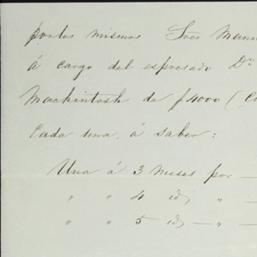 por los mismos Sres Mann
á cargo del expresado Dn
Mackintosh de $4000 (C
Cada una, á saber:
Una á 3 meses por —
" " 4 id — " —
" " 5 id — " —